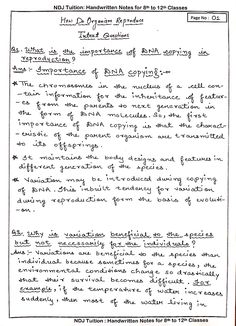 NDJ Tuition: Handwritten Notes for 8th to 12th Classes
How Do Organism Reproduce
Page No : 01
Intext Questions
Q1. What is the importance of DNA copying in
reproduction?
Ans:- Importance of DNA copying:-
* The chromosomes in the nucleus of a cell con
-tain information for the inheritance of featur
-es from the parents to next generation in
the form of DNA molecules. So, the first
importance of DNA copying is that the charact-
-eristic of the parent organism are transmitted
to its offsprings.
* It maintains the body designs and features in
different generation of the species.
* Variation may be introduced during copying
of DNA. This inbuilt tendency for variation
during reproduction form the basis of evoluti-
on.
Q2. Why is variation beneficial to the species
but not necessarily for the individuals?
Ans:- Variations are beneficial to the species than
individual because sometimes for a species, the
environmental conditions change so drastically
that their survival becomes difficult. For
example, if the temperature of water increases
suddenly, then most of the water living in
NDJ Tuition : Handwritten Notes for 8th to 12th Classes